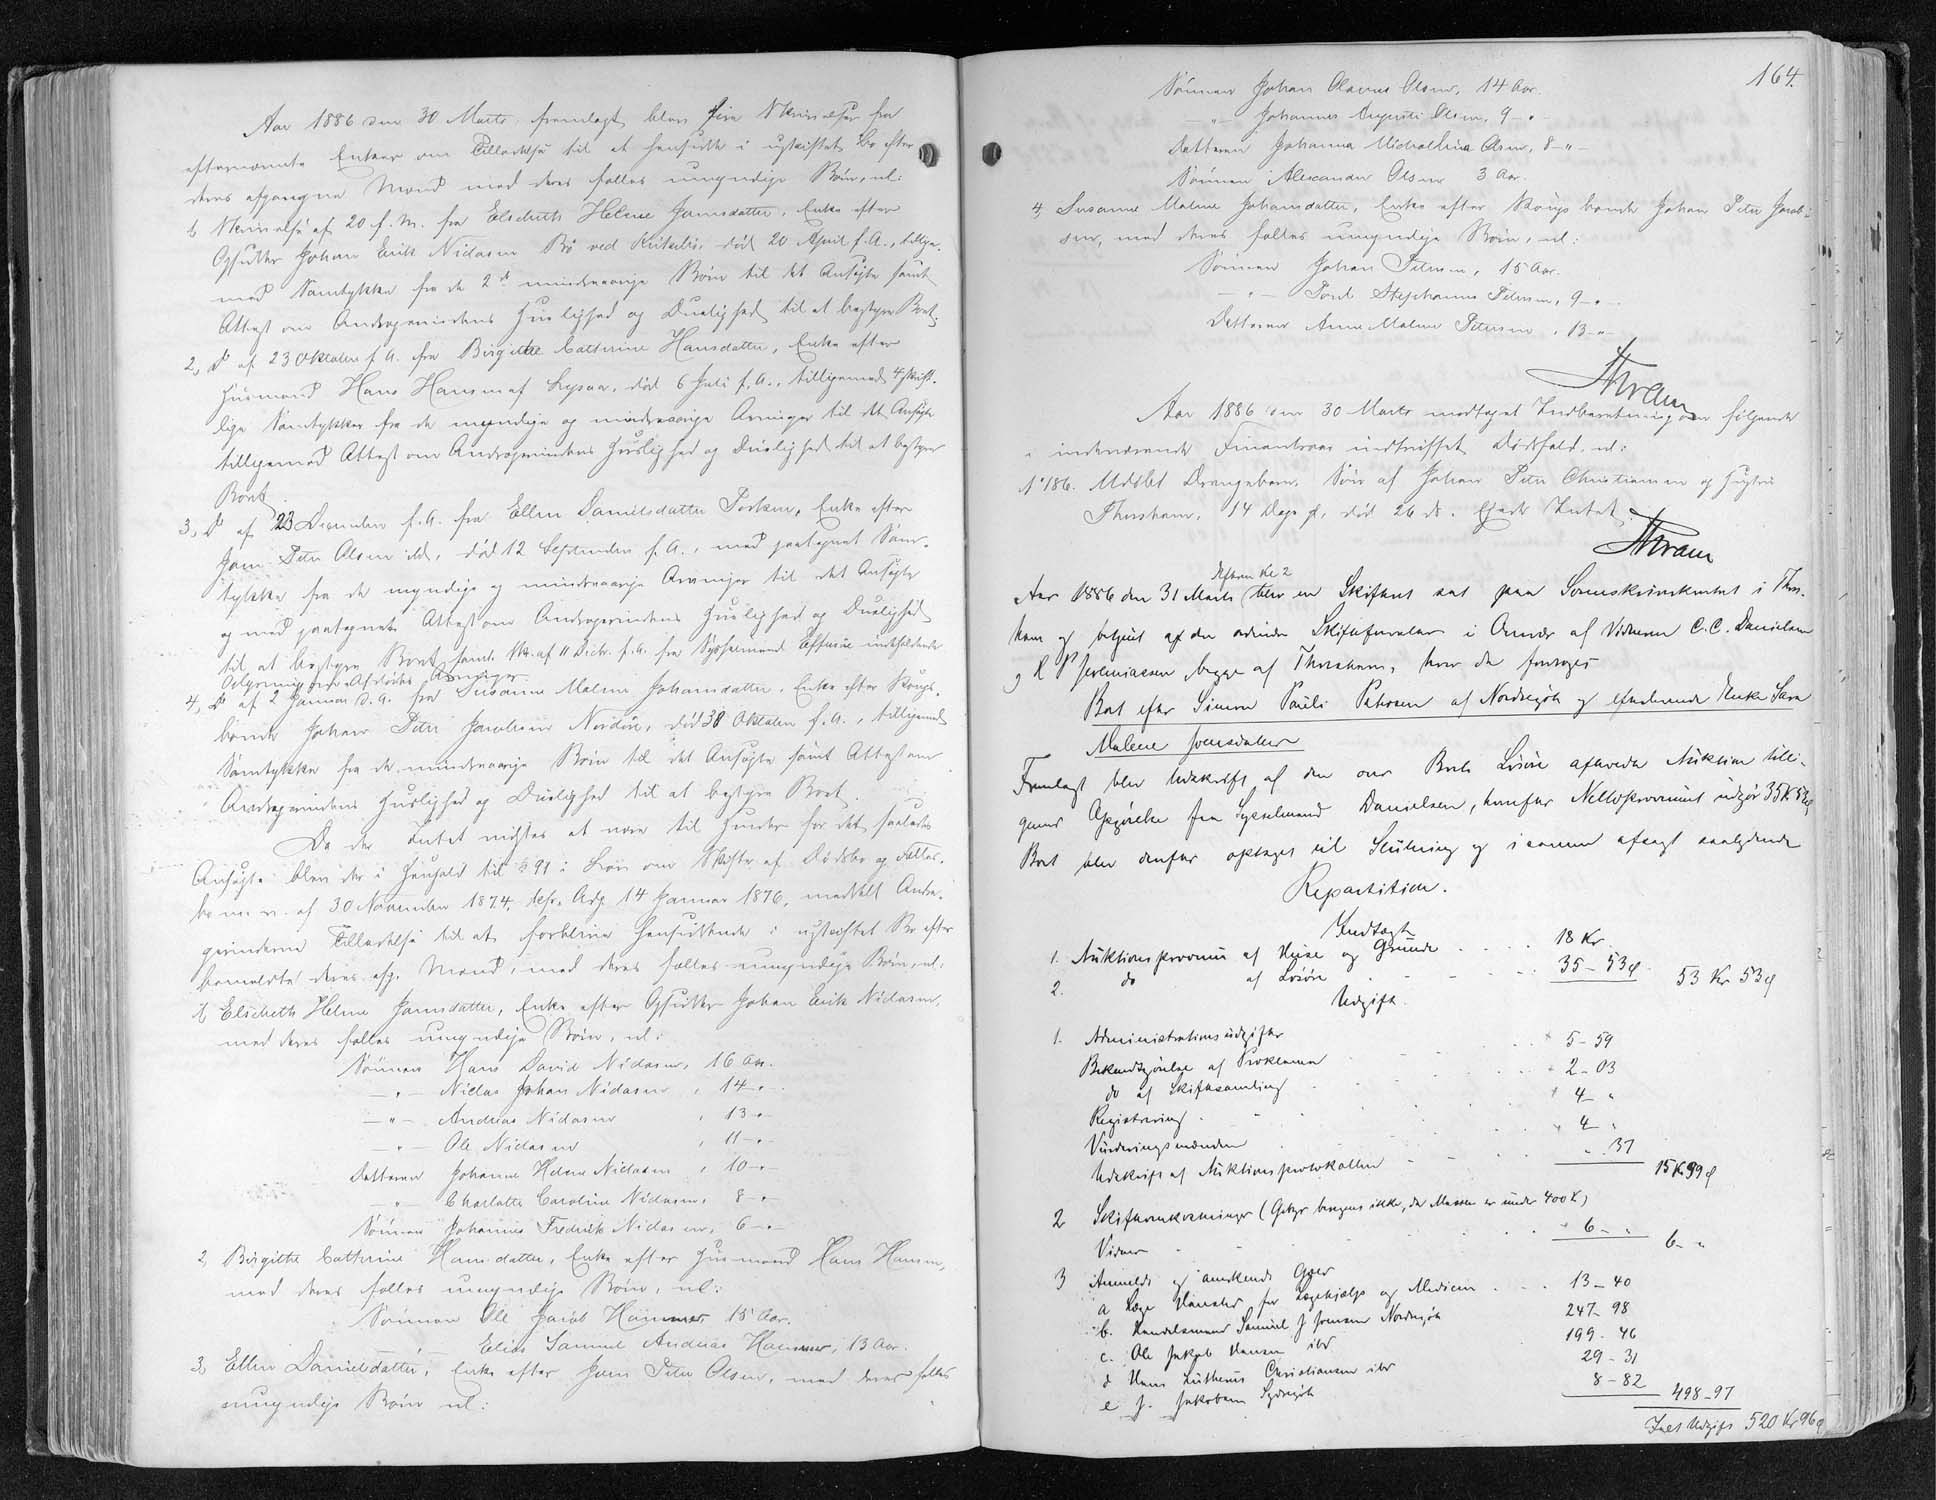 Aar 1886 den 30 Marts fremlagt blev fire Skrivelser fra
efternævnte Enker om Tilladelse til at hensidde i uskiftet Bo efter
deres afgangne Mænd med deres fælles umyndige Børn, nl:
1, Skrivelse af 20 f. M. fra Elsebeth Helene Joensdatter, Enke efter
Opsidder Johan Erik Niclasen Bø ved død 20 April f. A., tillige-
med Samtykke fra de 2de mindreaarige Børn til det Ansøgte samt
Attest om Andragerindens Huuslighed og Duelighed til at bestyre Boet.
2, Do af 23 Oktober f. A. fra Birgithe Cathrine Hansdatter, Enke efter
Huusmand Hans Hansen af død 6 Juli f. A., tilligemed 4 skrift-
lige Samtykker fra de myndige og mindreaarige Arvinger til det Ansøgte
tilligemed Attest om Andragerindens Huuslighed og Duelighed til at bestyre
Boet.
3, Do af 23 December f. A. fra Ellen Danielsdatter Enke efter
Joen Peter Olsen ibd, død 12 September f. A., med paategnet Sam-
tykke fra de myndige og mindreaarige Arvinger til det Ansøgte
og med paategnet Attest om Andragerindens Huuslighed og Duelighed
til at bestyre Boet samt Sk. af 11 Decbr. f. A. fra Sysselmand Effersøe indeholdende
Oplysning om Afdødes Arvinger.
4, Do af 2 Januar d. A. fra Susanne Malene Johansdatter, Enke efter Kongs-
bonde Johan Peter Jacobsen død 30 Oktober f. A., tilligemed
Samtykke fra de mindreaarige Børn til det Ansøgte samt Attest om
Andragerindens Huuslighed og Duelighed til at bestyre Boet.
Da der Intet vidstes at være til Hinder for det saaledes
Ansøgte blev der i Henhold til § 91 i Lov om Skifte af Dødsbo og Fælles-
bo m. v. af 30 November 1874, cfr. Adg. 14 Januar 1876, meddelt Andra-
gerinderne Tilladelse til at forblive hensiddende i uskiftet Bo efter
bemeldte deres afg. Mænd, med deres fælles umyndige Børn, nl:
1, Elsebeth Helene Joensdatter, Enke efter Opsidder Johan Erik Niclasen,
med deres fælles umyndige Børn, nl:
Sønnen Hans David Niclasen, 16 Aar.
— " — Niclas Johan Niclasen, 14 — " —
— " — Andreas Niclasen, 13 — "
— " — Ole Niclasen, 11 — " —
Datteren Johanne Helene Niclasen, 10 — " —
— " — Charlotte Caroline Niclasen, 8 — " —
Sønnen Johannes Fredrik Niclasen, 6 — " —
2, Birgithe Cathrine Hansdatter, Enke efter Huusmand Hans Hansen,
med deres fælles umyndige Børn, nl:
Sønnen Ole Jacob Hansen 15 Aar.
Elias Samuel Andreas Hansen, 13 Aar.
3, Ellen Danielsdatter, Enke efter Joen Peter Olsen, med deres fælles
umyndige Børn nl:
164.
Sønnen Johan Olanus Olsen, 14 Aar.
— " — Johannes Olsen, 9 — "
Datteren Johanna Olsen, 8 — " —
Sønnen Alexander Olsen 3 Aar.
4, Susanne Malene Johansdatter, Enke efter Kongsbonde Johan Peter Jacob-
sen, med deres fælles umyndige Børn, nl:
Sønnen Johan Petersen, 15 Aar.
— " — Poul Stephanus Petersen, 9 — " —
Datteren Anne Malene Petersen, 13 — " —
Aar 1886 den 30 Marts modtaget Indberetning om følgende
i indeværende Finantsaar indtruffet Dødsfald, nl:
No 186. Udøbt Drengebarn, Søn af Johan Peter Christiansen og Hustru
Thorshavn, 14 Dage gl., død 26 ds. Ejede Intet.
Efterm Kl 2
Aar 1886 den 31 Marts blev en Skifteret sat paa Sorenskriverkontoret i Thors-
havn og betjent af den ordinære Skifteforvalter i Overvær af Vidnerne C. C. Danielsen
og R P Jeremiassen begge af Thorshavn, hvor da foretoges
Boet efter Simon Pauli Petersen af Nordregjøte og efterlevende Enke Sara
Malene Joensdatter
Fremlagt blev Udskrift af den over Boets Løsøre afholdte Auktion tilli-
gemed Opgjørelse fra Sysselmand Danielsen, hvorefter Nettoprovenuet udgjør 35 K 53 ø
Boet blev derefter optaget til Slutning og i samme afsagt saalydende
Repartition.
Indtægt
1. Auktionsprovenu af Huse og Grunde . . . . 18 Kr
2. do af Løsøre . . . . 35 – 53 ø 53 Kr 53 ø
Udgift.
1. Administrationsudgifter
Bekendtgjørelse af Proklama . . . 5 – 59
do af Skiftesamling . . . 2 – 03
Registrering . . . 4 – "
Vurderingsmændene . . . 4 – "
Udskrift af Auktionsprotokollen . . . " 37 15 K 99 ø
2 Skifteomkostninger (Gebyr beregnes ikke, da Massen er under 400 K)
Vidner . . . 6 – " 6 – "
3 Anmeldt og anerkendt Gæld
a Læge for Lægehjælp og Medicin . . . 13 – 40
b. Handelsmand Samuel J Joensen Nordregjøte 247 – 98
c. Ole Jakob Hansen ibd 199 – 46
d Hans Lutherus Christiansen ibd 29 – 31
e J. Jakobsen Sydregjøte 8 – 82 498 – 97
Ialt Udgift 520 Kr 96 ø